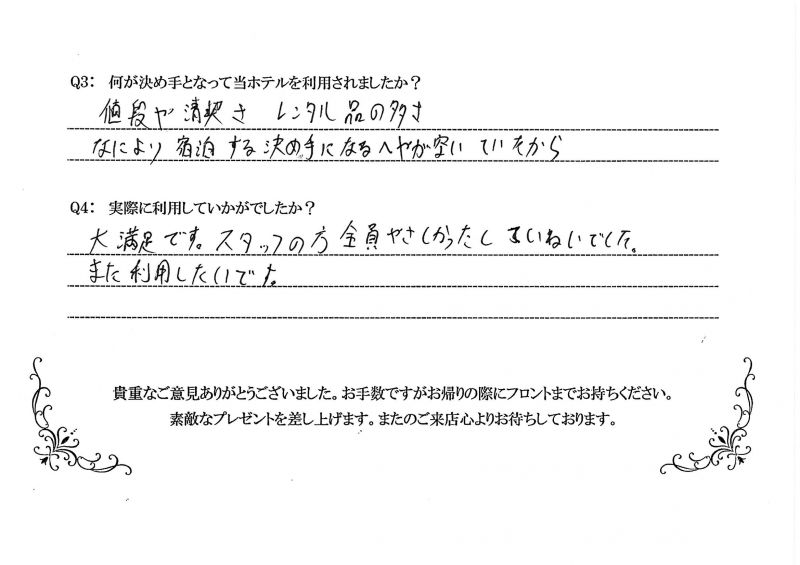 Q3： 何が決め手となって当ホテルを利用されましたか？
値段や清潔さ レンタル品の多さ
なにより宿泊する決め手になるへやが空いていたから
Q4： 実際に利用していかがでしたか？
大満足です。スタッフの方全員やさしかったしていねいでした。
また利用したいです。
貴重なご意見ありがとうございました。お手数ですがお帰りの際にフロントまでお持ちください。
素敵なプレゼントを差し上げます。またのご来店心よりお待ちしております。